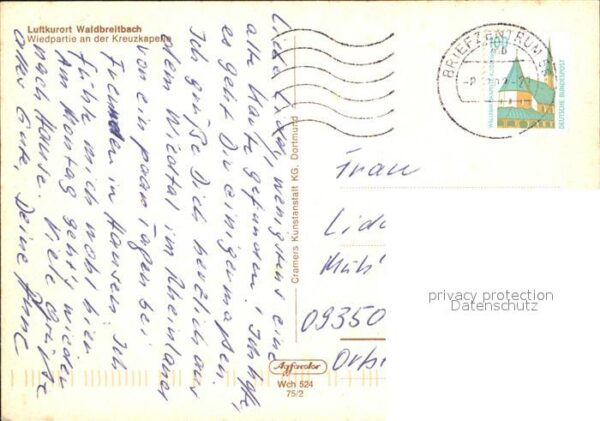 Luftkurort Waldbreitbach
Wiedpartie an der Kreuzkapelle
wenigstens eine
alte Karte gefunden. Ich hoffe,
es geht Dir einigermaßen.
Ich grüße Dich herzlich aus
dem Wiedtal im Rheinland
von ein paar Tagen bei
Freunden in Hausen. Ich
fühle mich wohl hier
Am Montag geht's wieder
nach Hause. Viele Grüße
alles Gute, Deine Anne
Cramers Kunstanstalt KG. Dortmund
Agfacolor
Wch 524
75/2
BRIEFZENTRUM
DEUTSCHE BUNDESPOST
Frau
Lid
Müh
09350
privacy protection
Datenschutz